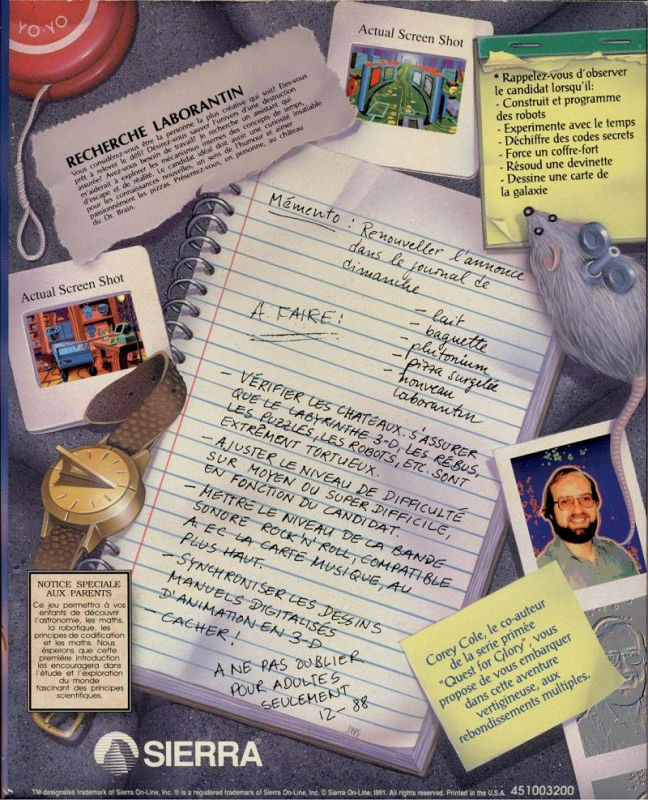 YO-YO
RECHERCHE LABORANTIN
Vous considérez-vous être la personne la plus créative qui soit? Etes-vous
prêt à relever le défi? Désirez-vous sauver l'univers d'une destruction
assurée? Avez-vous besoin de travail? Je recherche un assistant qui
m'aiderait à explorer les mécanismes internes des concepts de temps,
d'escape et de réalité. Le candidat idéal doit avoir une curiosité insatiable
pour les connaissances nouvelles, un sens de l'humour et aimer
passionnément les pizzas. Présentez-vous, en personne, au château
du Dr. Brain.
Actual Screen Shot
* Rappelez-vous d'observer
le candidat lorsqu'il:
- Construit et programme
des robots
- Experimente avec le temps
- Déchiffre des codes secrets
- Force un coffre-fort
- Résoud une devinette
- Dessine une carte de
la galaxie
Actual Screen Shot
Mémento : Renouveller l'annonce
dans le journal de
dimanche
- lait
- baguette
- plutonium
- pizza surgelée
- nouveau
laborantin
A FAIRE!
- VÉRIFIER LES CHATEAUX. S'ASSURER
QUE LE LABYRINTHE 3-D, LES RÉBUS,
LES PUZZLES, LES ROBOTS, ETC. SONT
EXTRÊMENT TORTUEUX.
- AJUSTER LE NIVEAU DE DIFFICULTÉ
SUR MOYEN OU SUPER DIFFICILE,
EN FONCTION DU CANDIDAT.
- METTRE LE NIVEAU DE LA BANDE
SONORE ROCK'N'ROLL, COMPATIBLE
A EC LA CARTE MUSIQUE, AU
PLUS HAUT.
- SYNCHRONISER LES DESSINS
MANUELS DIGITALISÉS
D'ANIMATION EN 3-D
- CACHER!
A NE PAS OUBLIER
POUR ADULTES
SEULEMENT
12-88
NOTICE SPECIALE
AUX PARENTS
Ce jeu permettra à vos
enfants de découvrir
l'astronomie, les maths,
la robotique, les
principes de codification
et les maths. Nous
ésperons que cette
première introduction
les encouragera dans
l'étude et l'exploration
du monde
fascinant des principes
scientifiques.
Corey Cole, le co-auteur
de la serie primée
"Quest for Glory", vous
propose de vous embarquer
dans cette aventure
vertigineuse, aux
rebondissements multiples.
SIERRA
TM designates trademark of Sierra On-Line, Inc. ® is a registered trademark of Sierra On-Line, Inc. © Sierra On-Line, 1991. All rights reserved. Printed in the U.S.A. 451003200